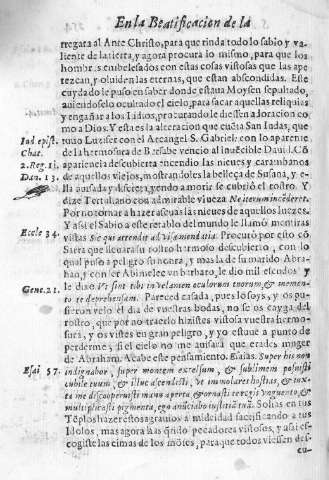 En la Beatificacion de la
rregara al Ante Christo, para que rinda todo lo sabio y va-
liente de la tierra, y agora procura lo mismo, para que los
hombres embelesados con estas cosas vistosas que las ape-
tezcan, y oluiden las eternas, que estan abscondidas. Este
cuydado le puso en saber donde estaua Moysen sepultado,
auiendoselo ocultado el cielo, para sacar aquellas reliquias
y engañar a los Iudios, procurando le diessen adoracion co-
mo a Dios. Y esta es la altercacion que cuẽta San Iudas, que
Iud. epist. tuuo Luzifer con el Arcangel S. Gabriel: con lo aparente
Chat. de la hermosura de Bersabe vencio al inuẽcible Dauid. Cõ
2. Reg. 11. apariencia descubierta encendio las nieues y carambanos
Dan. 13. de aquellos viejos, mostrandoles la belleza de Susana, y e-
lla auisada y discreta, yendo a morir se cubrió el rostro. Y
dize Tertuliano con admirable viueza Ne iterum incederet.
Por no tornar a hazer ascuas las nieues de aquellos juezes.
Eccle 34. Y assi el Sabio a este retablo del mundo le llamó mentiras
vistas Sic qui attendit ad visa mendacia. Procuró por esto cõ
Sarra que lleuara su rostro hermoso descubierto, con lo
qual puso a peligro su honra, y mas la de su marido Abra-
han, y con ser Abimelec vn barbaro, le dio mil escudos y
Gene. 21. le dixo Vt sint tibi in velamen oculorum tuorum, & memen-
to te deprehensam. Pareced casada, pues lo soys, y os pu-
sieron velo el dia de vuestras bodas, no se os cayga del
rostro, que por no traerlo hizistes vistosa vuestra hermo-
sura, y os vistes en gran peligro, y yo estuue a punto de
perderme, si el cielo no me auisara que erades muger
de Abraham. Acabe este pensamiento. Esaias. Super his non
Esai 57. indignabor, super montem excelsum, & sublimem posuisti
cubile tuum, & illuc ascendisti, vt immolares hostias, & iux-
ta me discooperuisti manu aperta & ornasti te regis vnguento, &
multiplicasti pigmenta, ego anũciabo iustitiã tuã. Solias en tus
Tẽplos hazer estos agrauios a mi deidad sacrificando a tus
Idolos, mas agora has qrido pecadores vistosos, y assi es-
cogiste las cimas de los mõtes, para que todos viessen des-
cu-